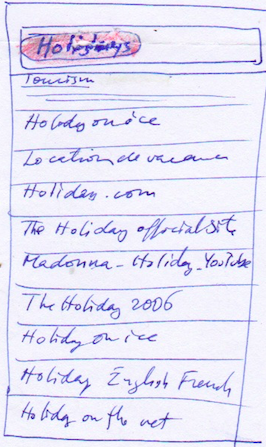 Holidays
Tourism
Holiday on ice
Location de vacances
Holiday.com
The Holiday official site
Madonna - Holiday - YouTube
The Holiday 2006
Holiday on ice
Holiday English French
Holiday on the net